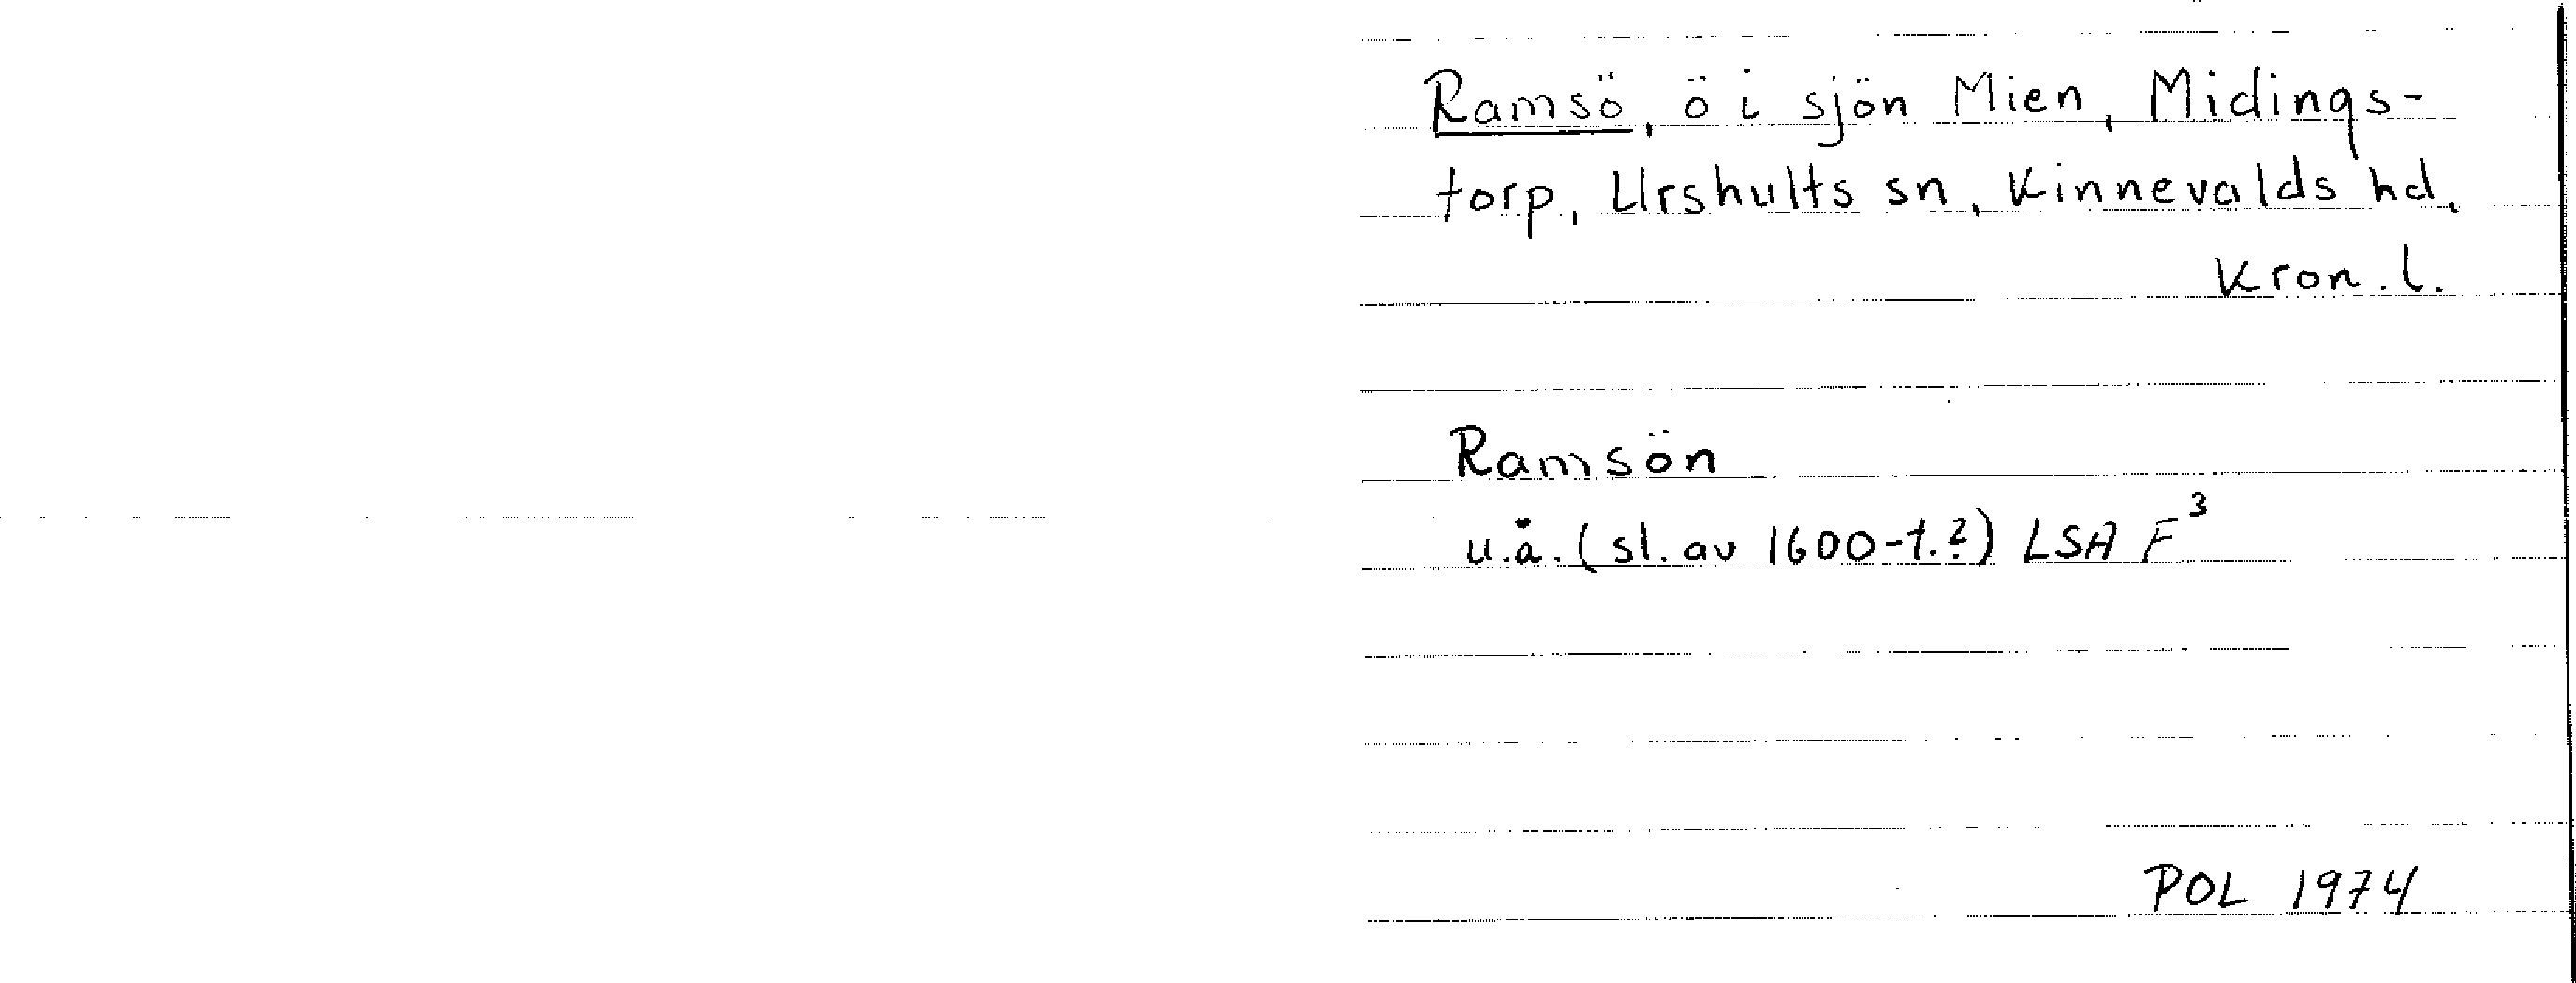 Ramsö, ö i sjön Mien, Midings-
torp, Urshults sn, Kinnevalds hd,
Kron. l.
Ramsön
u.å. (sl. av 1600-t.?) LSA F³
POL 1974